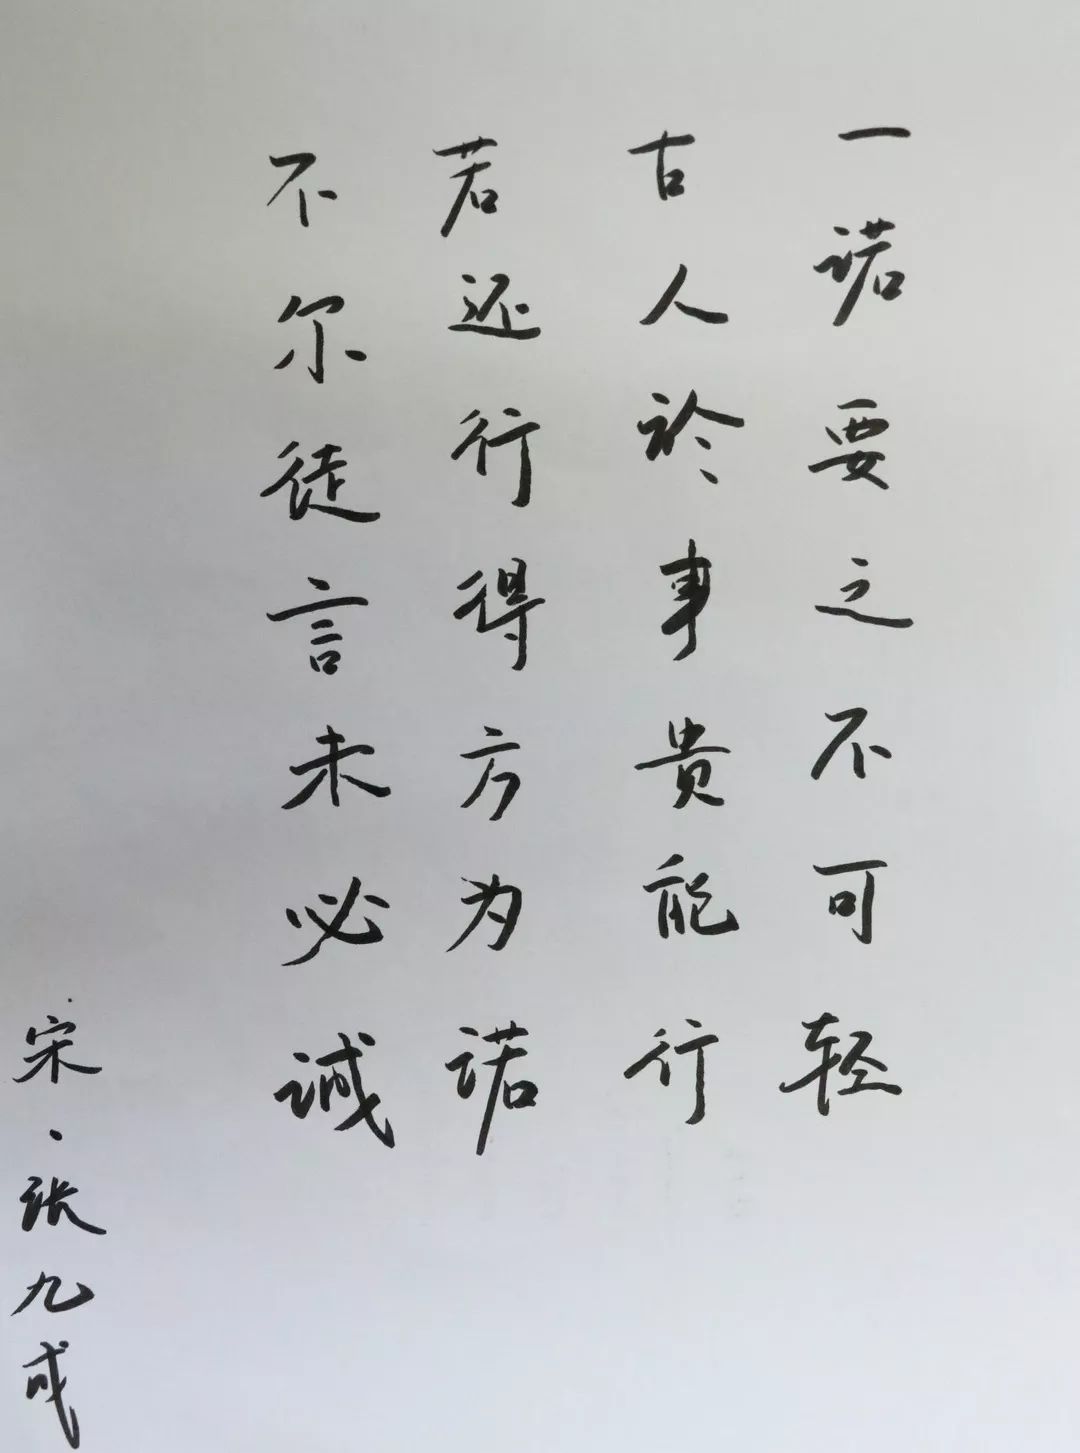 一诺要之不可轻
古人於事贵能行
若还行得方为诺
不尔徒言未必诚
宋·张九成